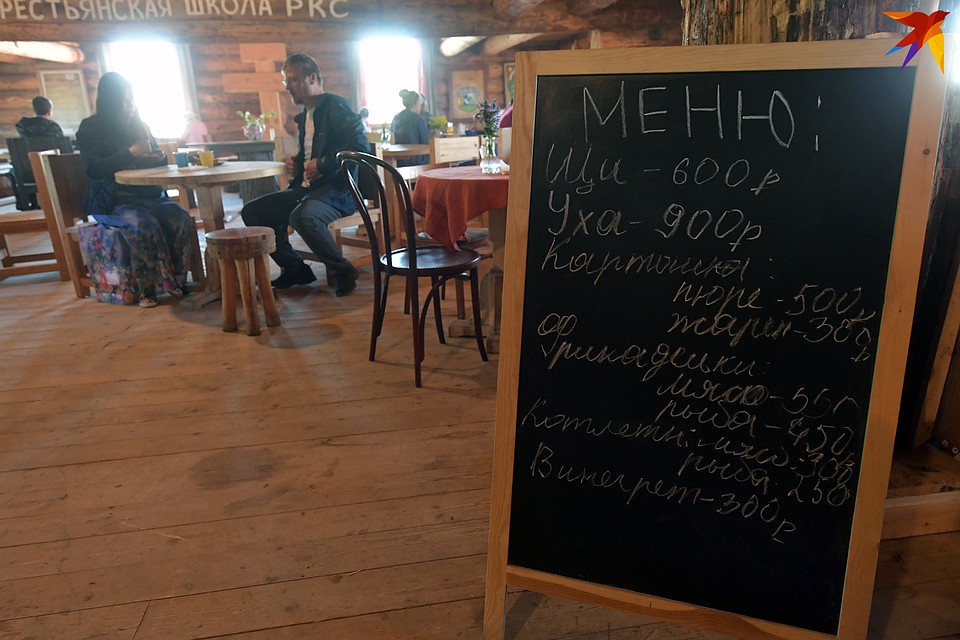 РЕСТЬЯНСКАЯ ШКОЛА РКС
МЕНЮ:
Щи - 600 р
Уха - 900 р
Картошка:
пюре - 500 р
жарен - 350 р
Фрикадельки:
мясо - 550
рыба - 450
Котлеты: мясо - 300
рыба 250
Винегрет - 300 р